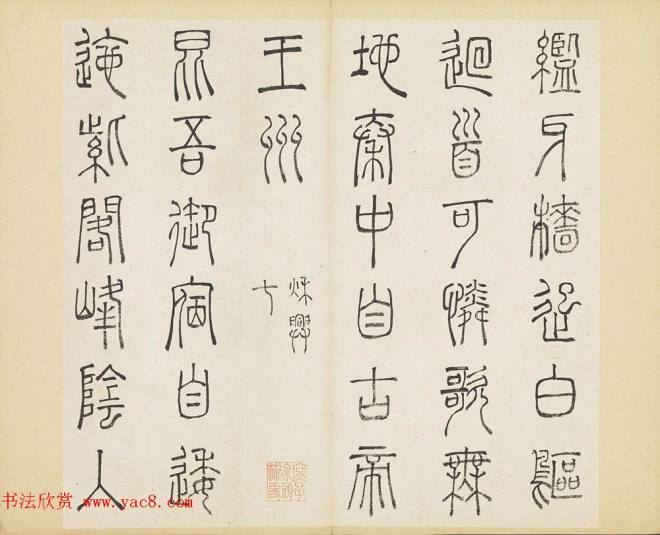 纜牙檣起白鷗
迴首可憐歌舞
地秦中自古帝
王州
秌興
七
昆吾御宿自逶
迤紫閣峰陰入
书法欣赏 www.yac8.com